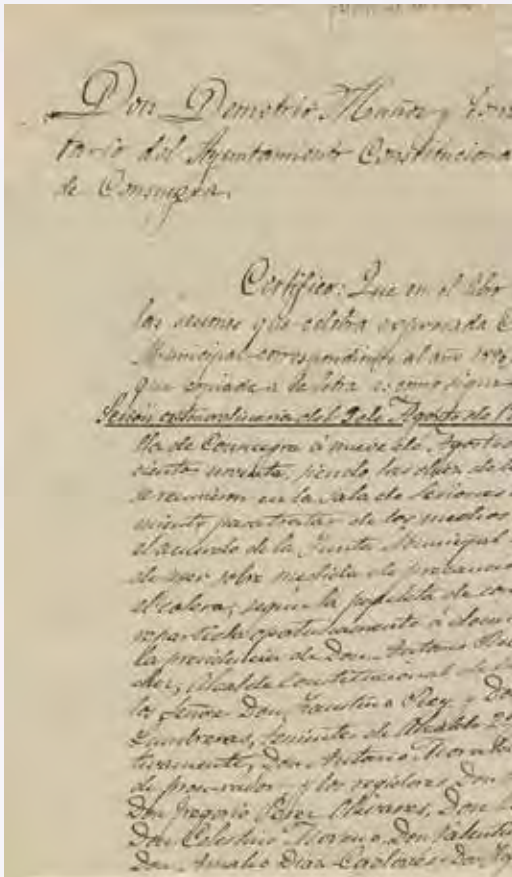 Don Demetrio Mañas y
tario del Ayuntamiento Constituciona
de Consuegra.
Certifico: Que en el libro
las sesiones que celebra expresada
Municipal correspondiente al año 1890
que copiada a la letra es como sigue
Sesión extraordinaria del 9 de Agosto de
lla de Consuegra á nueve de Agosto
ciento noventa, siendo las diez de la
se reunieron en la sala de sesiones
miento para tratar de los medios
el acuerdo de la Junta Municipal
de sobre medida de precaucio
el colera, según la papeleta de con
repartida oportunamente á
la presidencia de Don Antonio
Alcalde Constitucional de
los Señores Don Faustino Rey y Do
Lumbreras, tenientes de Alcalde
tivamente, Don Antonio Moral
de procurador, y los regidores Don
Don Gregorio Perez Olivares, Don
Don Celestino Moreno, Don Valentin
Don Amalio Diaz-Cardones, Don